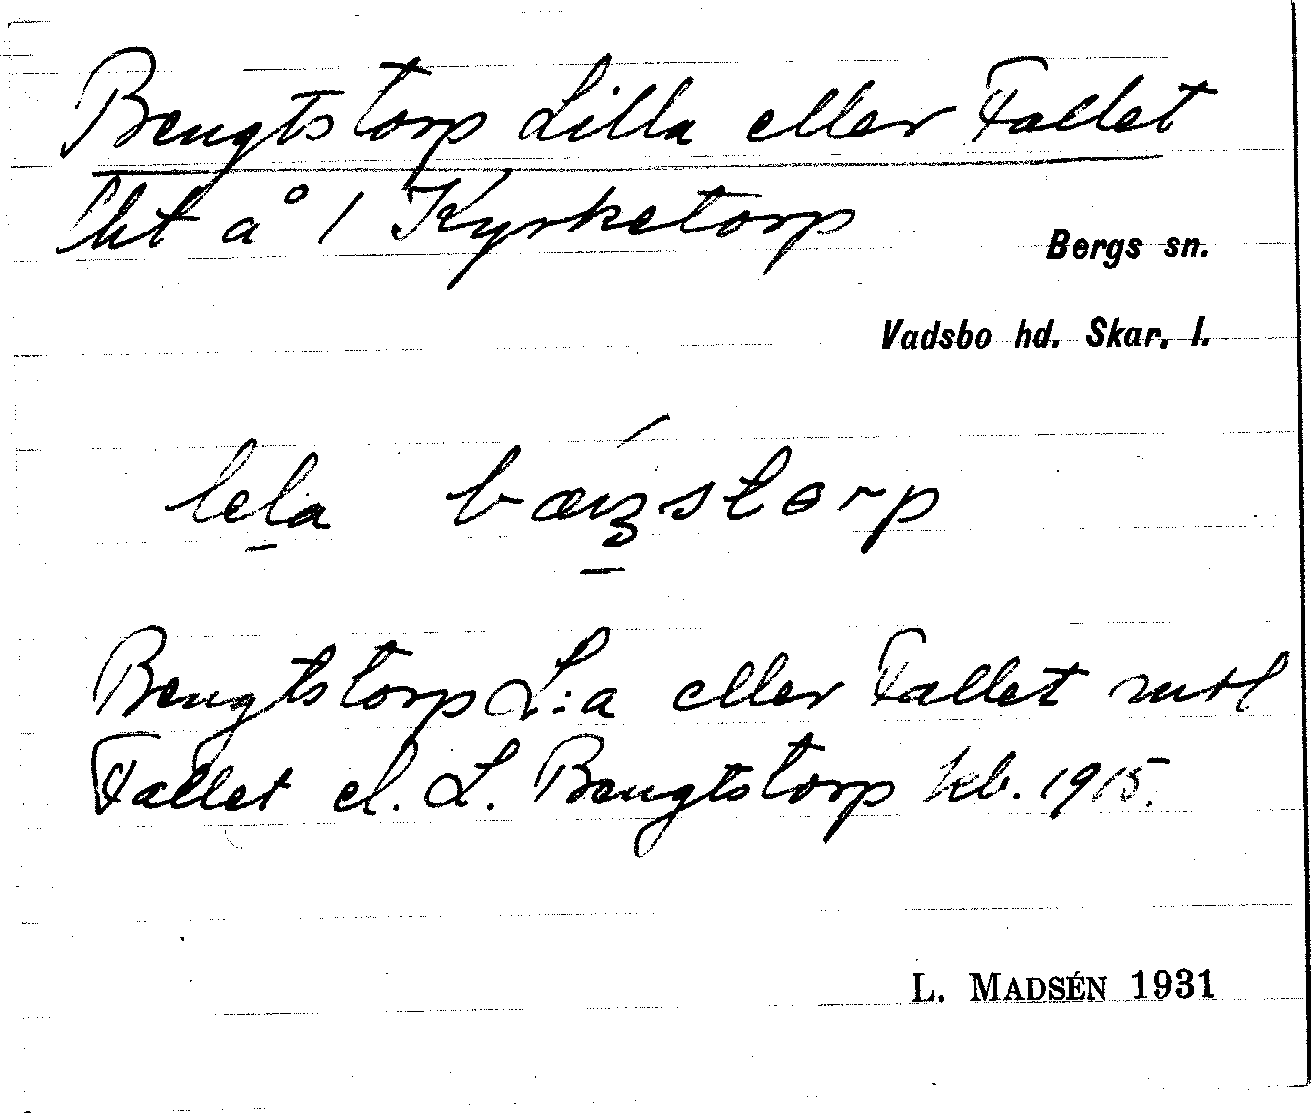 Bengtstorp Lilla eller Fallet
lht å 1 Kyrketorp
Bergs sn.
Vadsbo hd. Skar. l.
lela bæŋstorp
Bengtstorp L:a eller Fallet mtl
Fallet el. L. Bengtstorp kb. 1915.
L. MADSÉN 1931